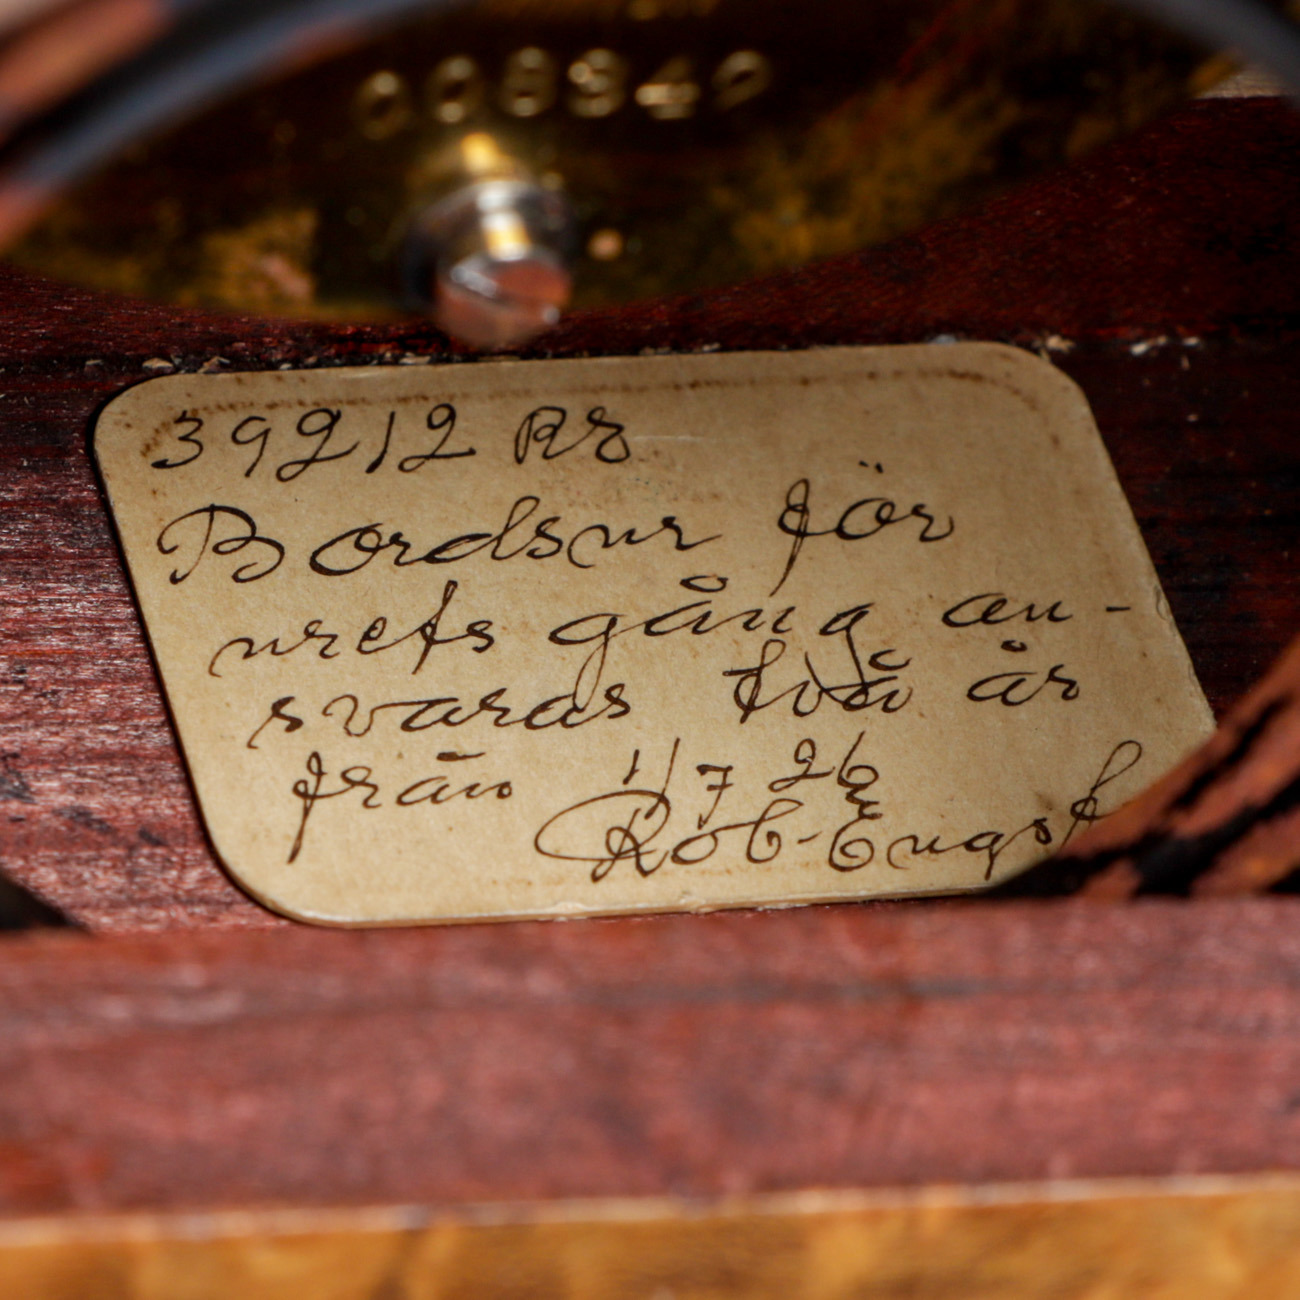 008349
39212 RE
Bordsur för
urets gång an-
svaras två år
från 1/7 26
Rob. Engst